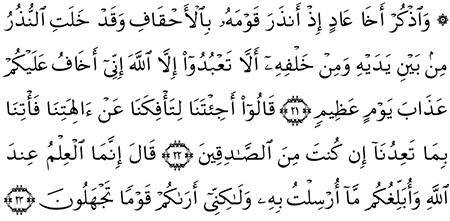 ۞ وَٱذۡكُرۡ أَخَا عَادٍ إِذۡ أَنذَرَ قَوۡمَهُۥ بِٱلۡأَحۡقَافِ وَقَدۡ خَلَتِ ٱلنُّذُرُ
مِنۢ بَيۡنِ يَدَيۡهِ وَمِنۡ خَلۡفِهِۦٓ أَلَّا تَعۡبُدُوٓاْ إِلَّا ٱللَّهَ إِنِّيٓ أَخَافُ عَلَيۡكُمۡ
عَذَابَ يَوۡمٍ عَظِيمٖ ٢١ قَالُوٓاْ أَجِئۡتَنَا لِتَأۡفِكَنَا عَنۡ ءَالِهَتِنَا فَأۡتِنَا
بِمَا تَعِدُنَآ إِن كُنتَ مِنَ ٱلصَّٰدِقِينَ ٢٢ قَالَ إِنَّمَا ٱلۡعِلۡمُ عِندَ
ٱللَّهِ وَأُبَلِّغُكُم مَّآ أُرۡسِلۡتُ بِهِۦ وَلَٰكِنِّيٓ أَرَىٰكُمۡ قَوۡمٗا تَجۡهَلُونَ ٢٣